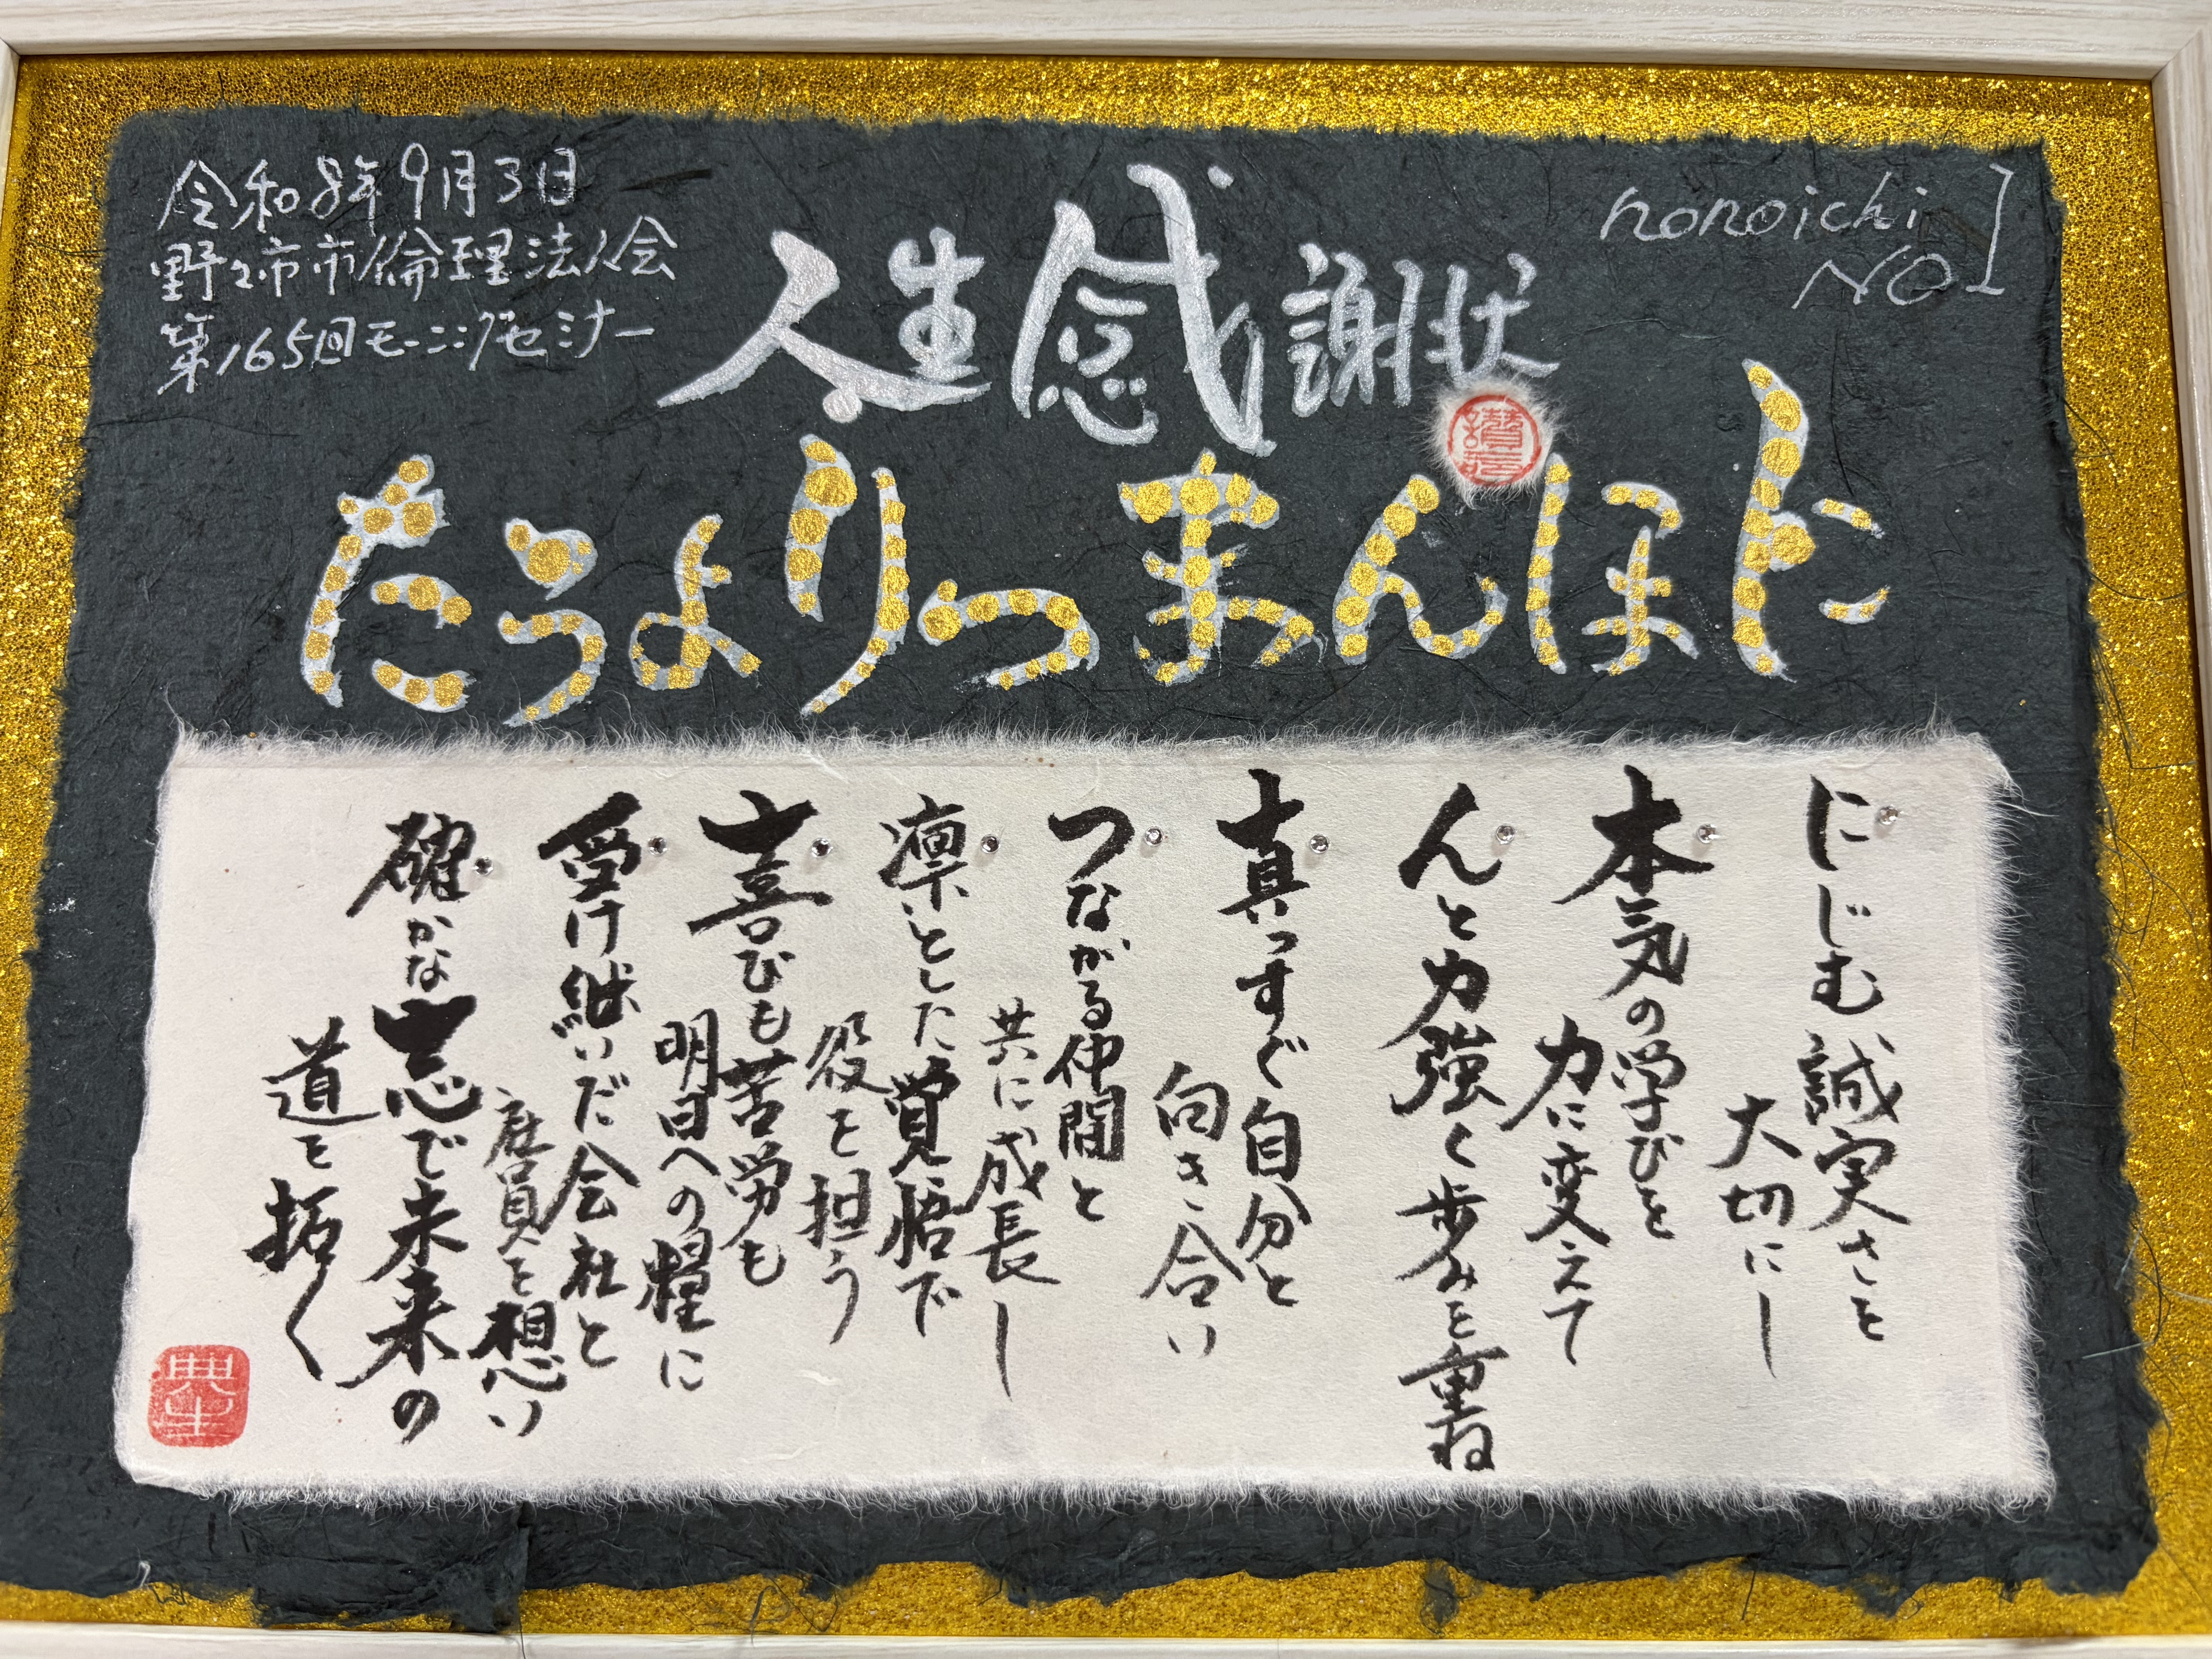 令和8年9月3日
野々市市倫理法人会
第165回モーニングセミナー
人生感謝状
nonoichi
NO1
にほんまつりようた
にじむ誠実さを
大切にし
本気の学びを
力に変えて
んと力強く歩みを重ね
真っすぐ自分と
向き合い
つながる仲間と
共に成長し
凛とした覚悟で
役を担う
喜びも苦労も
明日への糧に
受け継いだ会社と
社員を想い
確かな志で未来の
道を拓く
典生